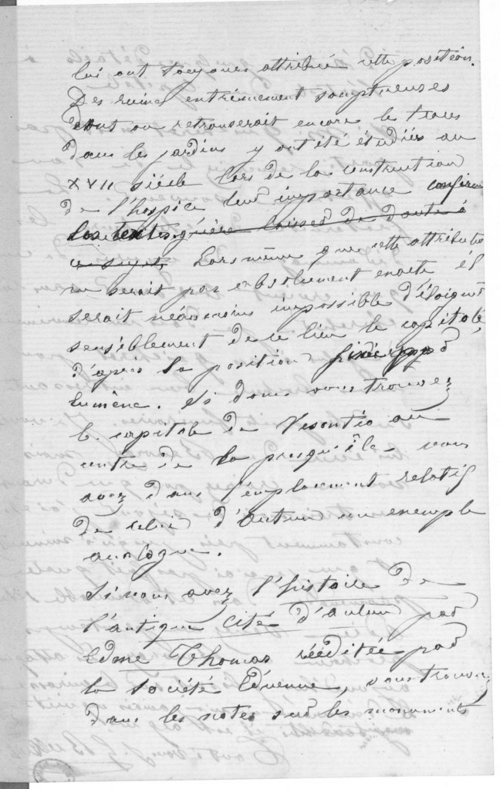 lui ont toujours attribuée cette position.
Des ruines extrêmement somptueuses
dont on retrouverait encore les traces
dans les jardins y ont été étudiées au
XVII siècle lors de la construction
de l'hospice leur importance confirme
les textes guère laissed de doute à
ce sujet. Lors même que cette attribution
ne serait pas absolument exacte il
serait néanmoins impossible d'éloigner
sensiblement de ce lieu le capitole
d'après la position fixée par
Eumène. Si donc vous trouvez
le capitole de Vesontio au
centre de la presqu'île vous
avez dans l'emplacement relatif
de celui d'Autun un exemple
analogue.
Si vous avez l'histoire de
l'antique cité d'autun par
Edme Thomas rééditée par
la Société Eduenne, vous trouverez
dans les notes sur les monuments